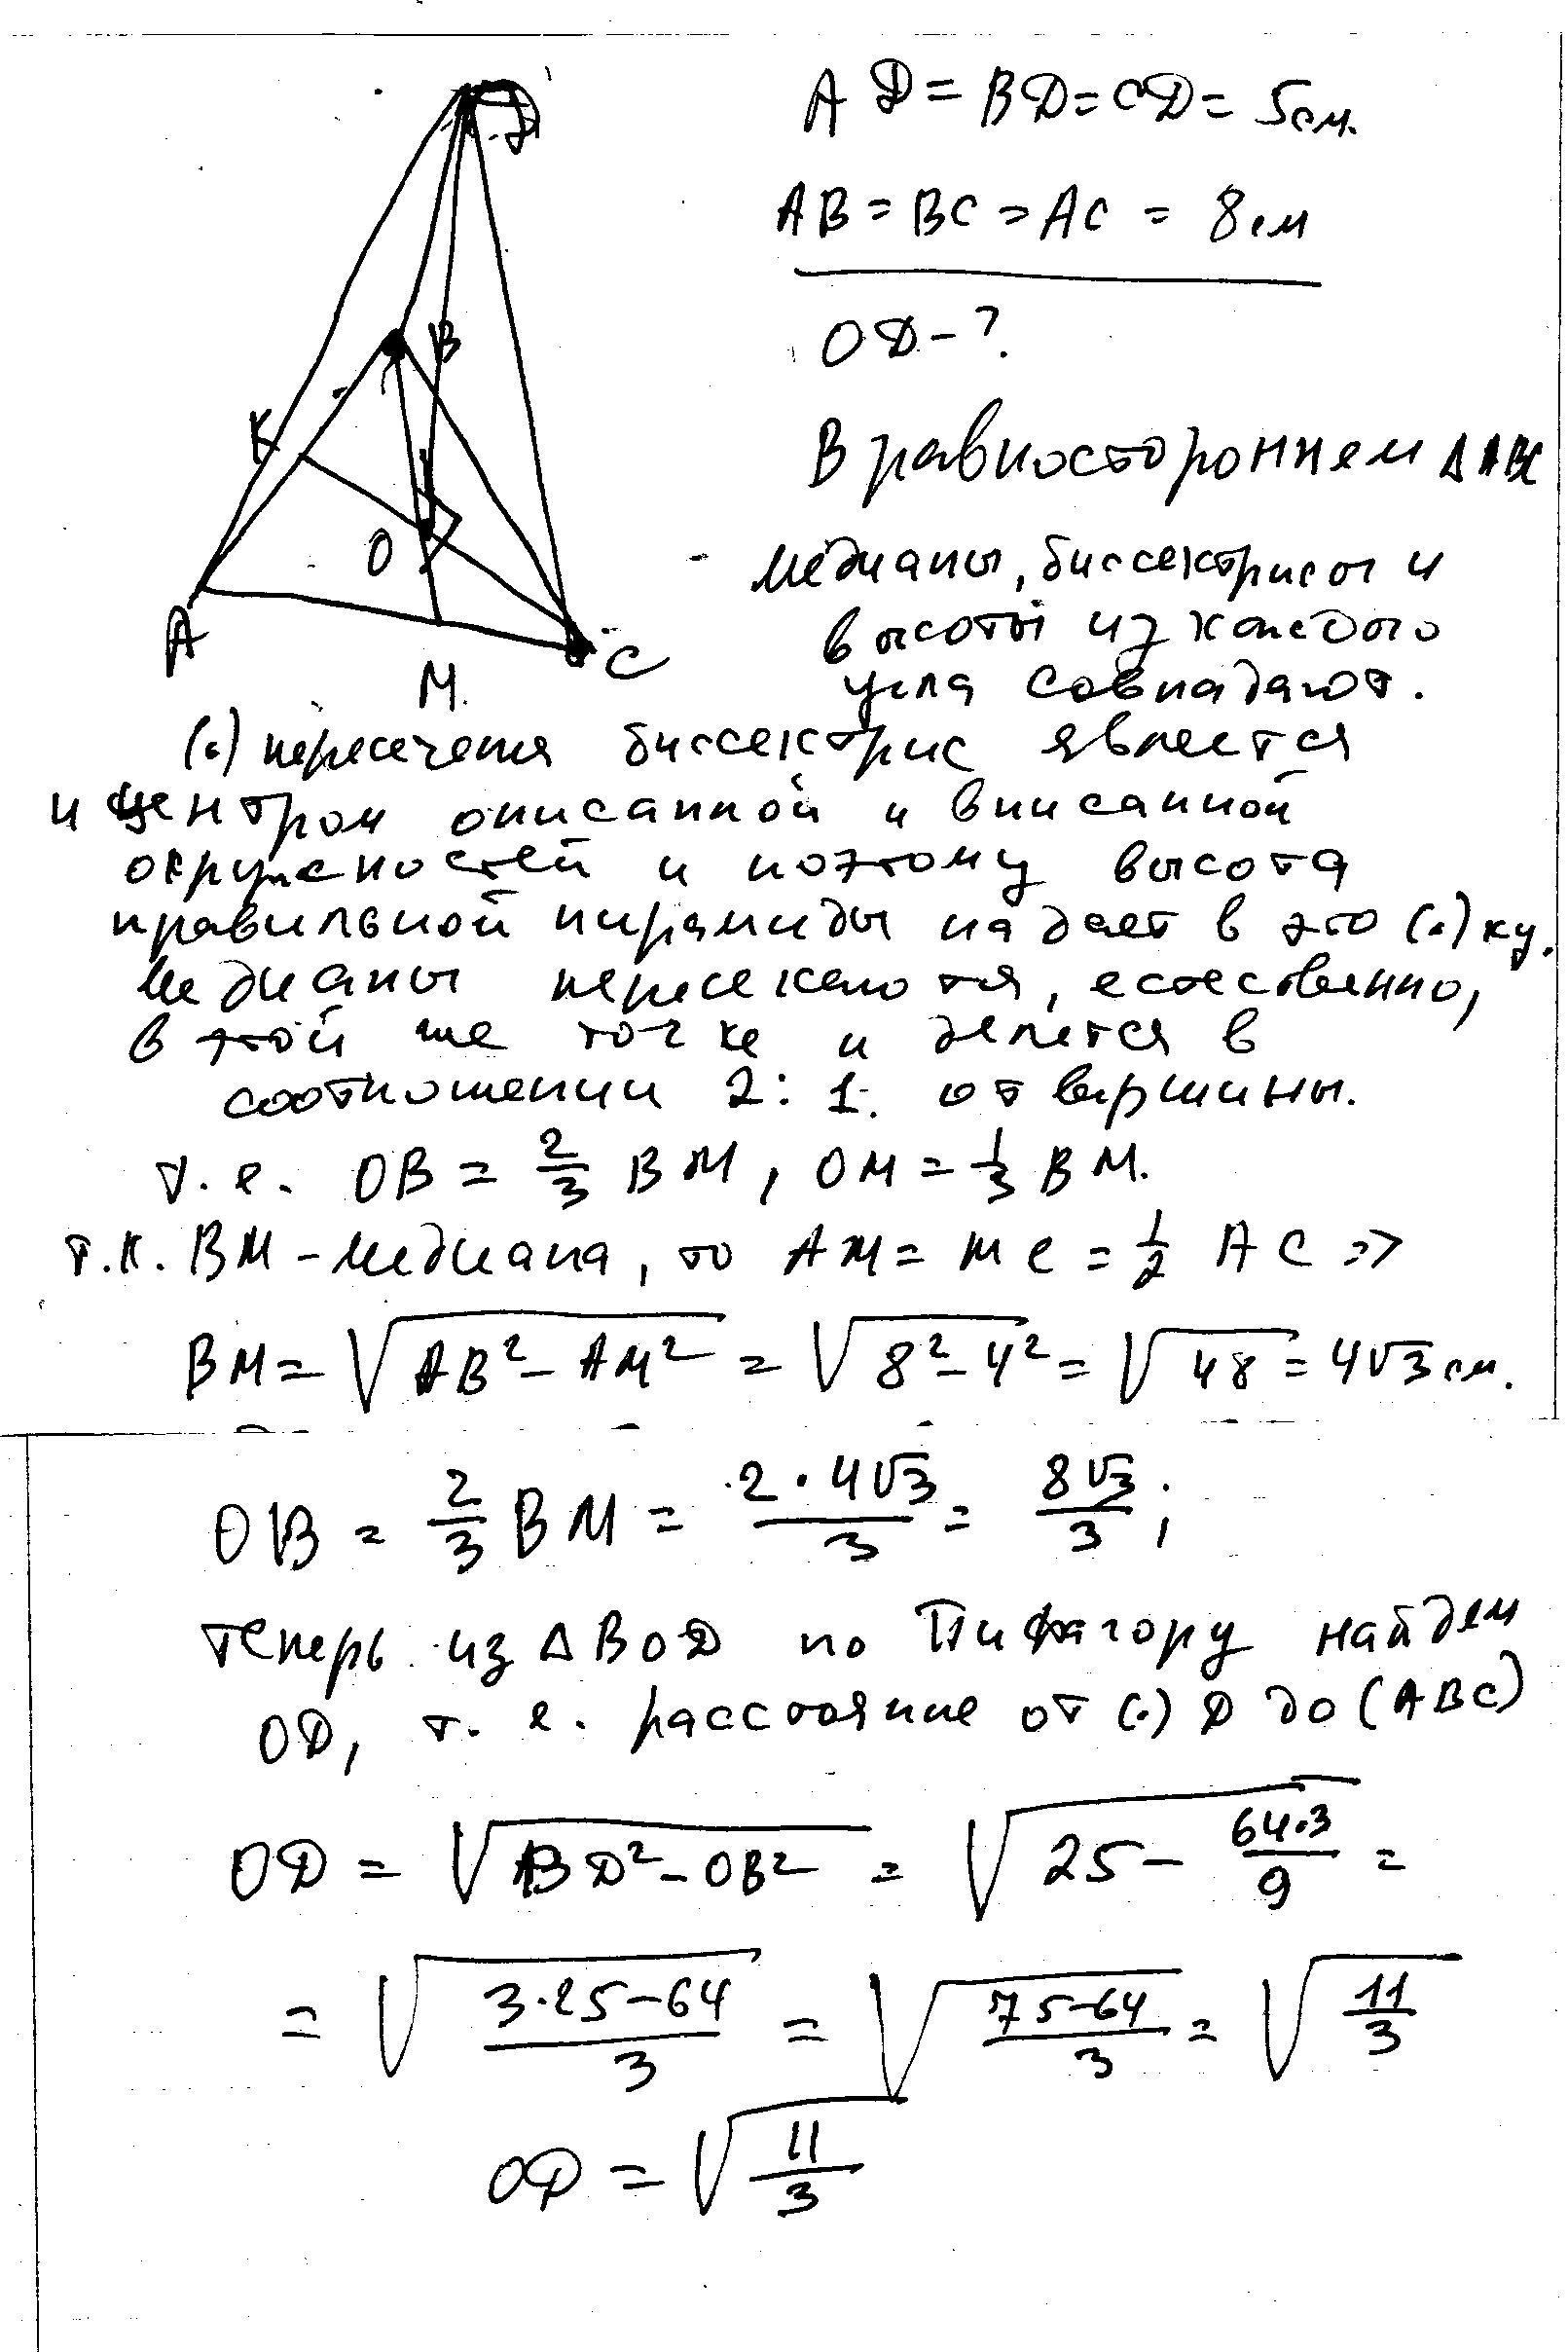 AD = BD = CD = 5 см.
AB = BC = AC = 8 см
OD - ?
D
B
K
O
A
M.
C
В равностороннем ΔABC
медианы, биссектрисы и
высоты из каждого
угла совпадают.
(.) пересечения биссектрис является
и центром описанной и вписанной
окружностей и поэтому высота
правильной пирамиды падает в это (.) ку.
Медианы пересекаются, естественно,
в этой же точке и делятся в
соотношении 2:1. от вершины.
т.е. OB = 2/3 BM, OM = 1/3 BM.
т.к. BM - медиана, то AM = MC = 1/2 AC =>
BM = √(AB² - AM²) = √(8² - 4²) = √48 = 4√3 см.
OB = 2/3 BM = 2·4√3/3 = 8√3/3;
теперь из ΔBOD по Пифагору найдем
OD, т.е. расстояние от (.) D до (ABC)
OD = √(BD² - OB²) = √(25 - 64·3/9) =
= √((3·25-64)/3) = √((75-64)/3) = √(11/3)
OD = √(11/3)